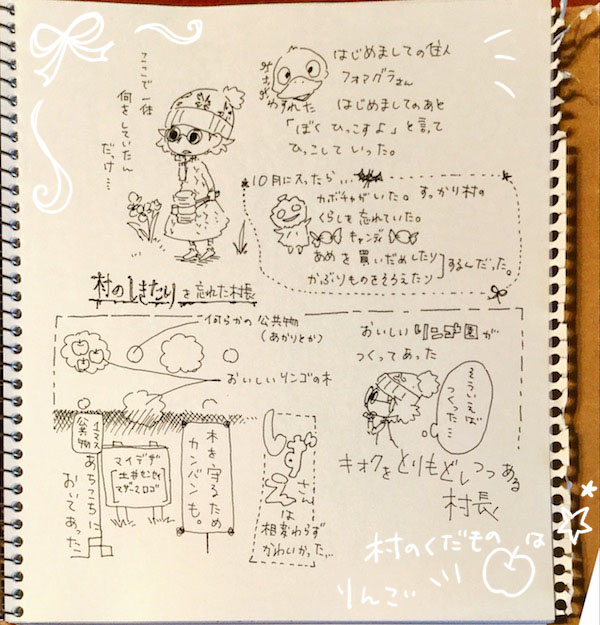 ここで一体
何をしていたん
だけ…
はじめましての住人
フォアグラさん
わすれた
はじめましてのあと
「ぼく ひっこすよ」と言って
ひっこして いった。
10月に入ったら…
カボチャがいた。すっかり村の
くらしを忘れていた。
キャンディ
あめを買いだめしたり
かぶりものをそろえたり
するんだった。
村のしきたりを忘れた村長
何らかの公共物
(あかりとか)
おいしいリンゴの木
おいしいリンゴ園が
つくってあった
そういえば
つくった…
キオクをとりもどしつつある
村長
イマス
公共物
あちこちに
おいてあった
マイデザ
マザーズロゴ
木を守るため
カンバンも。
しずえさん
は
相変わらず
かわいかった…
村のくだものは
りんご